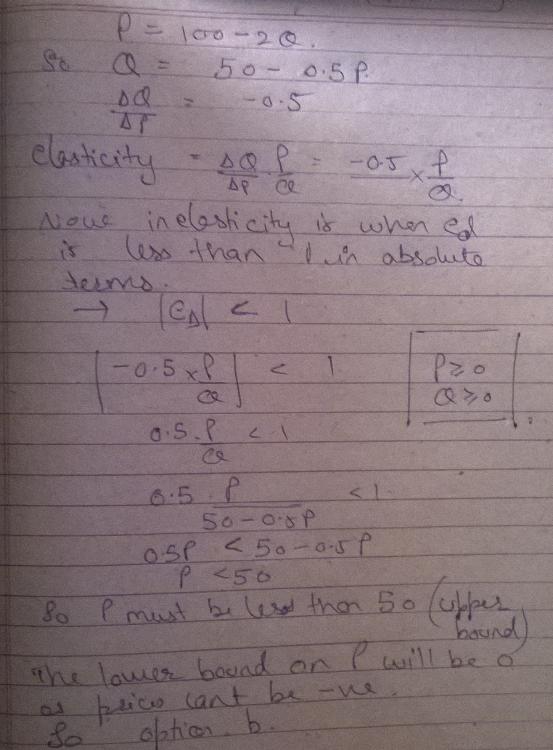 P = 100 - 2Q.
So Q = 50 - 0.5P.
ΔQ/ΔP = -0.5
Elasticity = ΔQ/ΔP P/Q = -0.5 × P/Q.
Now inelasticity is when ed
is less than 1 in absolute
terms.
→ |eD| < 1
|-0.5 × P/Q| < 1
P ≥ 0
Q ≥ 0
0.5 . P/Q < 1
0.5 . P/50 - 0.5P < 1.
0.5P < 50 - 0.5P
P < 50
So P must be less than 50 (upper
bound)
The lower bound on P will be 0
as prices cant be -ve.
So option b.